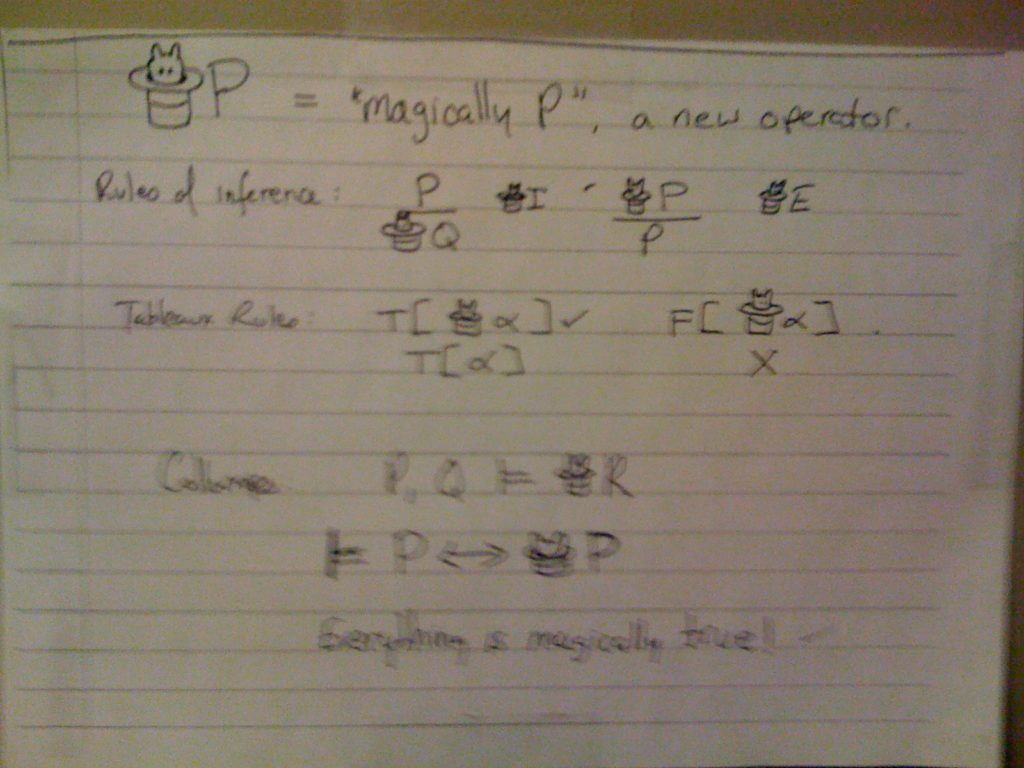 P = "magically P", a new operator.
Rules of inference: P I P E
Q P
Tableaux Rules: T[ α ] ✓ F[ α ] .
T[α] X
P, Q ⊨ R
⊨ P ↔ P
Everything is magically true!